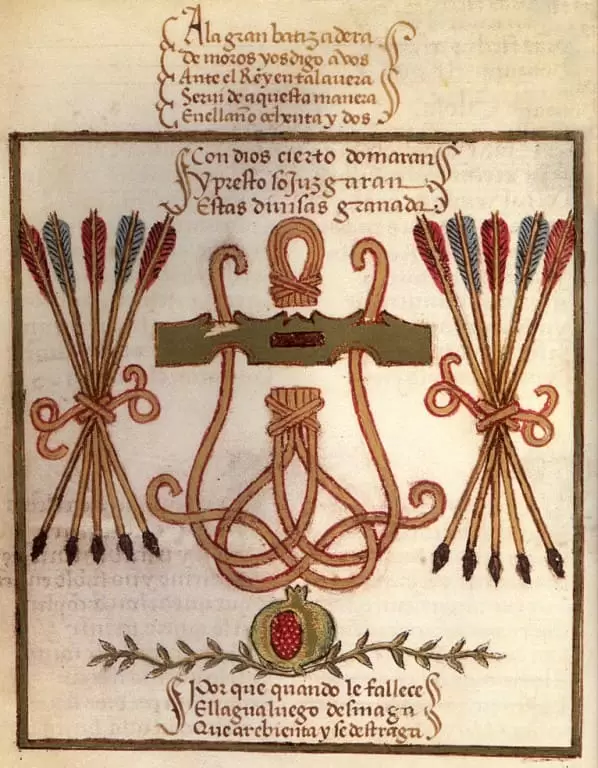 A la gran batizadera
de moros yos digo a vos
Ante el Rey en talavera
Serui de aquesta manera
En el año ochenta y dos
Con dios cierto domaran
y presto sojuzgaran
Estas diuisas granada
Por que quando le fallece
El lagua luego desmaya
Que arebienta y se destraga